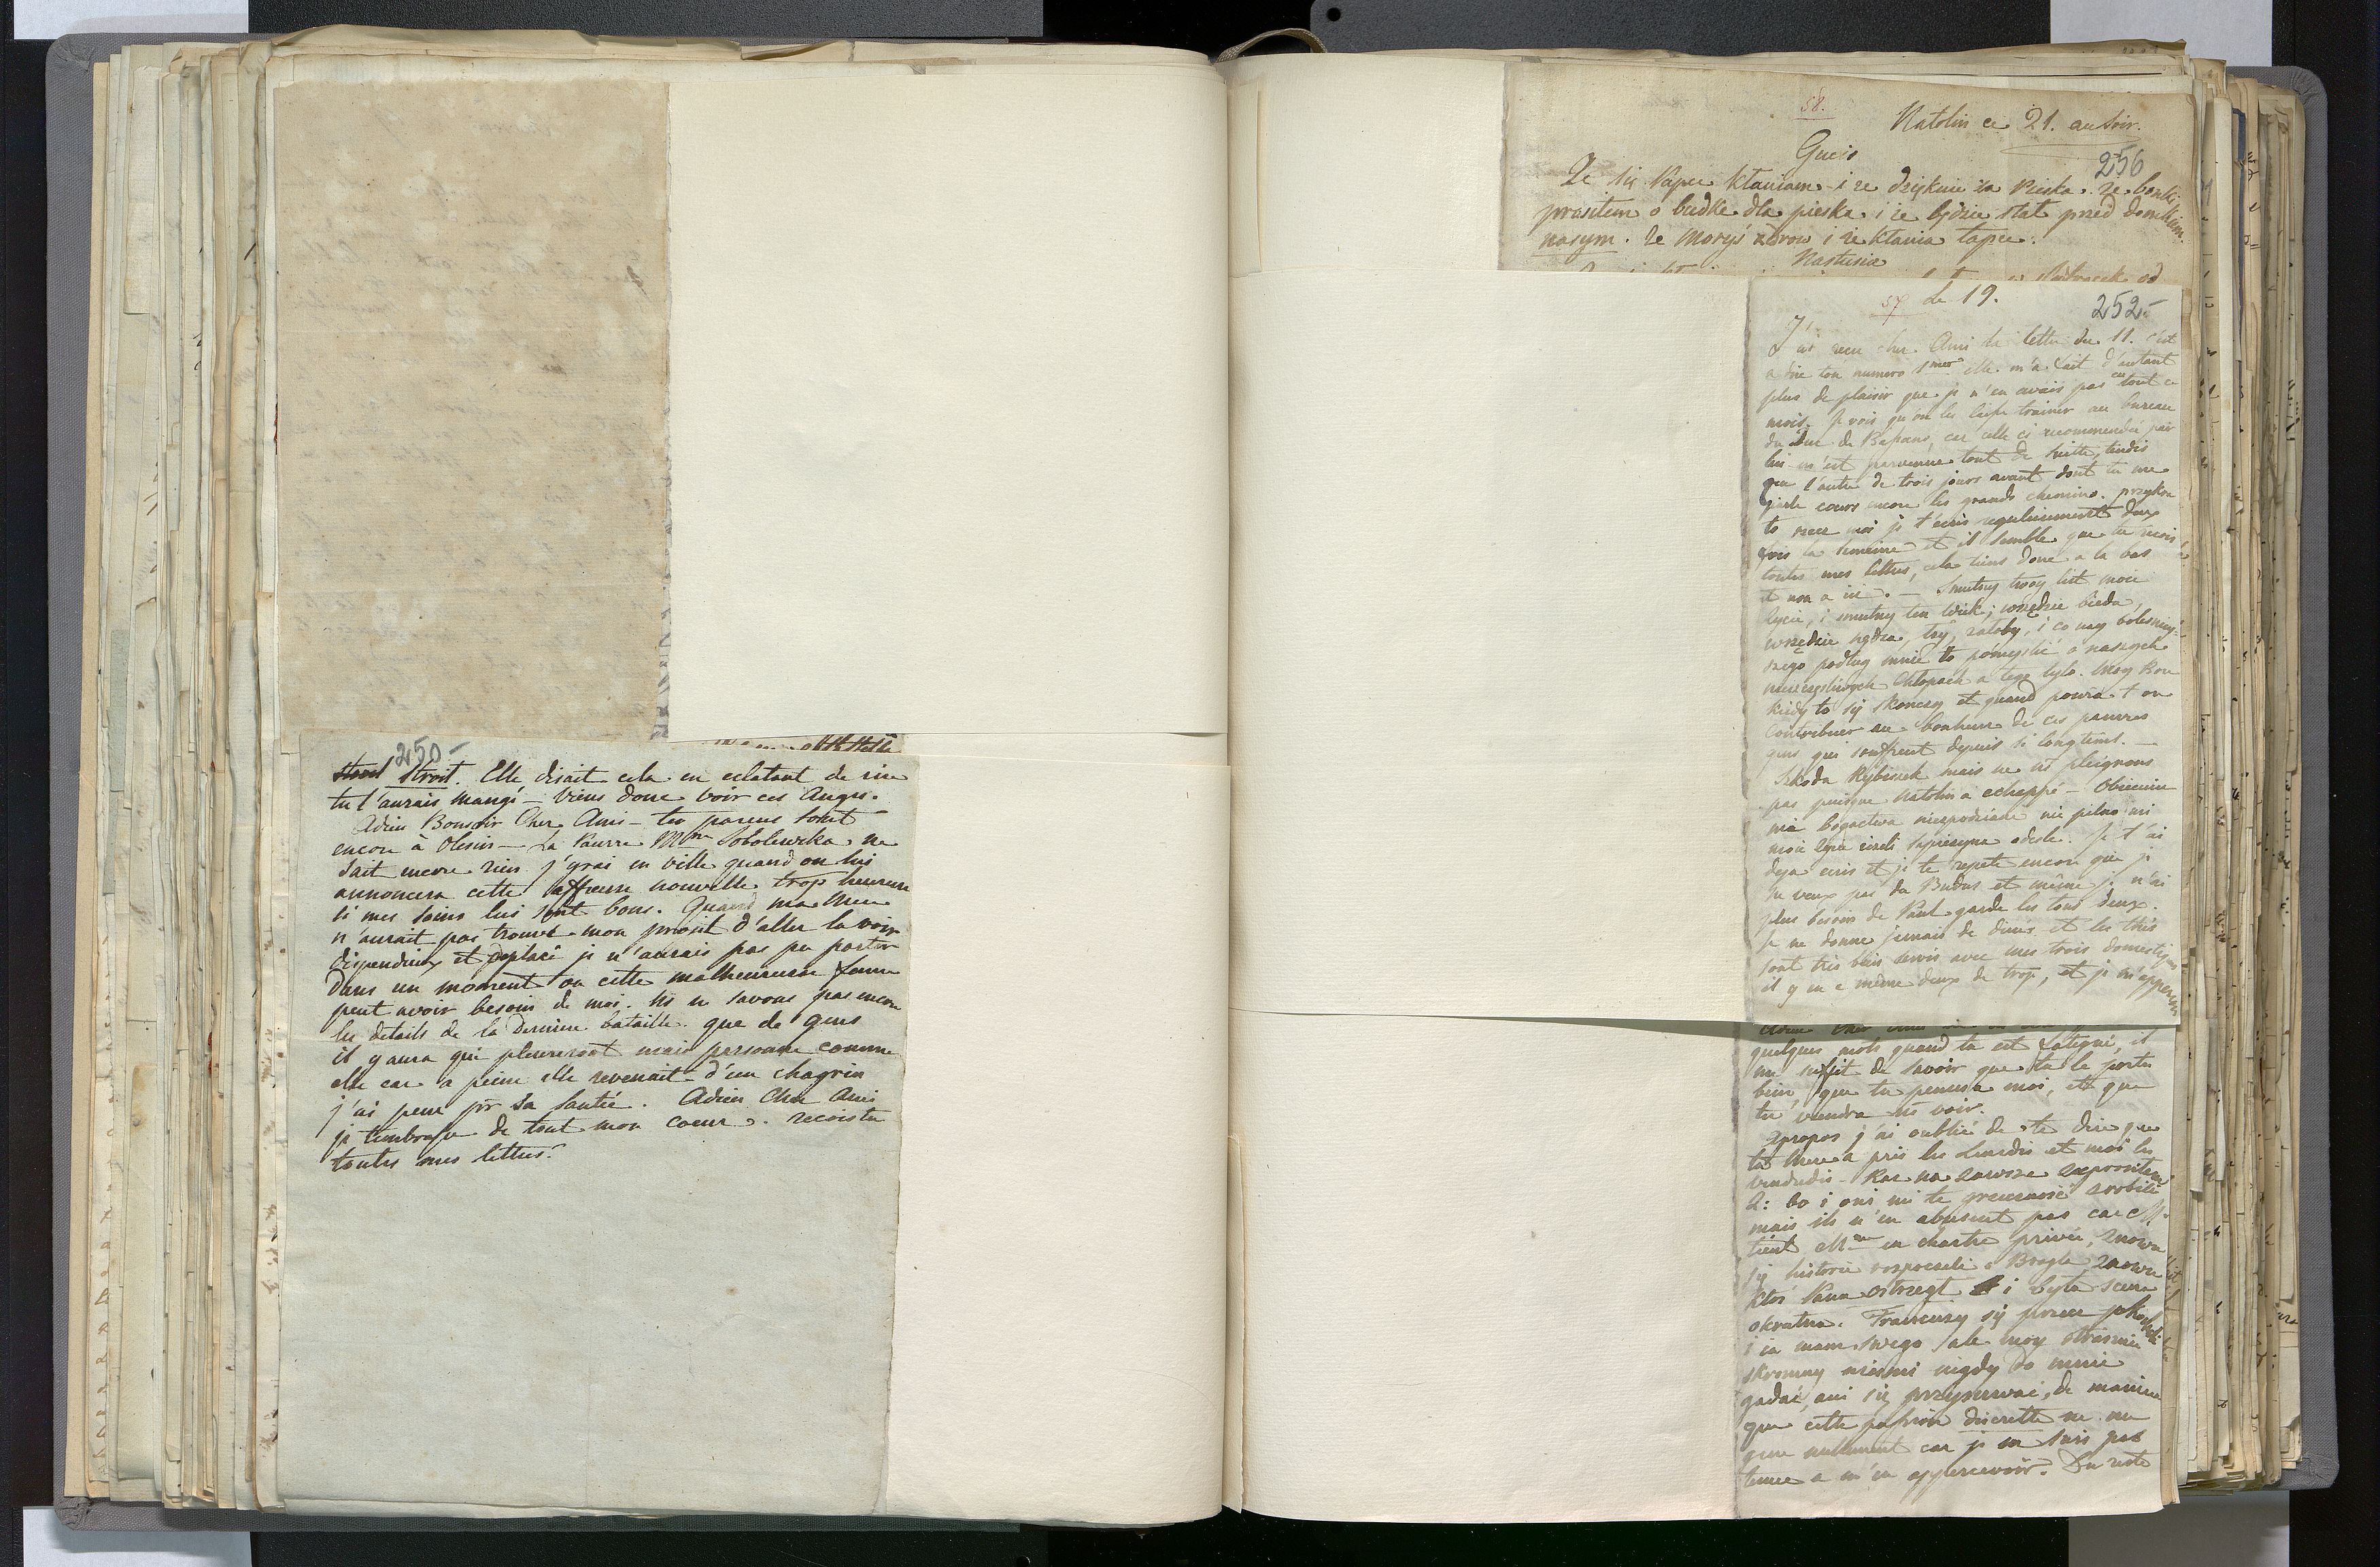 250-
Strod Stroit. Elle disait cela en eclatant de rire
tu l'aurais mangé – viens donc voir ces Anges.
Adieu Bonsoir Cher Ami – tes parens sont
encore à Olesin – La Pauvre Mme Sobolewska ne
sait encore rien j'yrai en ville quand on lui
annoncera cette affreuse nouvelle trop heureuse
si mes soins lui sont bons. Quand ma Mere
n'aurait pas trouvé mon projet d'aller la voir
dispendieux et deplacé je n'aurais pas pu partir
dans un moment ou cette malheureuse femme
peut avoir besoin de moi. ns ne savons pas encore
les details de la derniere bataille. que de gens
il y aura qui pleureront mais personne comme
elle car a peine elle revenait d'un chagrin
j'ai peur pr sa santé. Adieu Cher Ami
je t'embrasse de tout mon coeur. recois tu
toutes mes lettres?
58.
Natolin ce 21. au soir.
256
Gucio
Ze się Papce kłaniam i ze dziękuie za Pieska. ze
prositem o budke dla pieska i ze będzie stał przed domkiem
naszym. Ze Moryś zdrow i ze kłania tapce.
Nastusia
57 Le 19.
252-
J'ai recu cher Ami ta lettre du 11. c'est
a dire ton numero 1mier elle m'a fait d'autant
plus de plaisir que je n'en avais pas eu tout ce
mois. Je vois qu'on les laisse trainer au bureau
du Duc de Bassano, car celle ci recommendée par
lui m'est parvenue tout de suitte, tandis
que l'autre de trois jours avant dont tu me
parle cours encore les grands chemins. przykra
to rzecz moi je t'ecris regulierement deux
fois la semaine et il semble que tu recois
toutes mes lettres, cela tiens donc a la bas
et non a ici. – Smutny twoy list moie
życie, i smutny ten wiek; wszędzie bieda,
wszędzie nędza, łzy, załoby, i co nay bolesniey-
szego podług mnie to pomyslić o naszych
nieszczęśliwych Chłopach a tego tylo. Moy Boze
kiedy to się skonczy et quand poura t on
contribuer au bonheur de ces pauvres
gens qui souffrent depuis si longtems. –
Szkoda Rybienek mais ne ns pleignons
pas puisque Natolin a echappé – Obiecuie
mie bogactwa niespodziane nie pilno mi
moie życie iezeli Sapiezyna odesle. Je t'ai
deja ecris et je te repete encore que je
ne veux pas du Budas et même je n'ai
plus besoin de Paul garde les tous deux.
Je ne donne jamais de diners et les thés
sont très bien servis avec mes trois domestiques
il y en a même deux de trop, et je m'apperçois
quelques mots quand tu est fatigué, il
me suffit de savoir que tu te porte
bien, que tu pense a moi, et que
tu viendra ns voir.
Apropos j'ai oublié de te dire que
ta Mere a pris les Lundis et moi les
vendredis – Raz na zawsze zaprosiłem
2: bo i oni mi te grzeczność zrobili
mais ils n'en abusent pas car M.
tient Mme en chartre privée, znowu
się historie rozpoczeli o Brogla znowu
ktoś Pana ostrzegł i była scena
okrutna. Francuzy się przecie
i ia mam swego ale moy strasznie
skromny niesmi nigdy do mnie
gadać, ani się przypisywać, de maniere
que cette passion discrette ne me
gene nullement car je ne suis pas
tenue a m'en appercevoir. Du reste